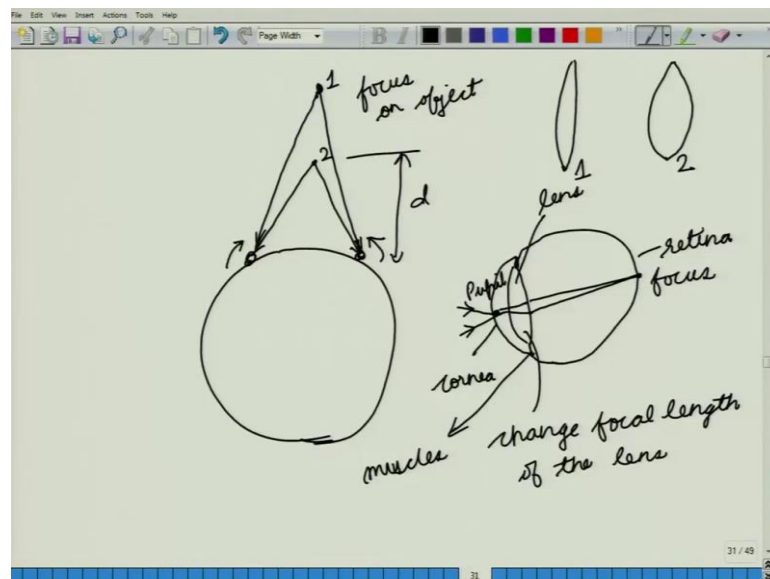 File Edit View Insert Actions Tools Help
Page Width
B I
1
focus
on object
2
d
1
2
lens
retina
focus
Pupil
cornea
muscles
change focal length
of the lens
31 / 49
31